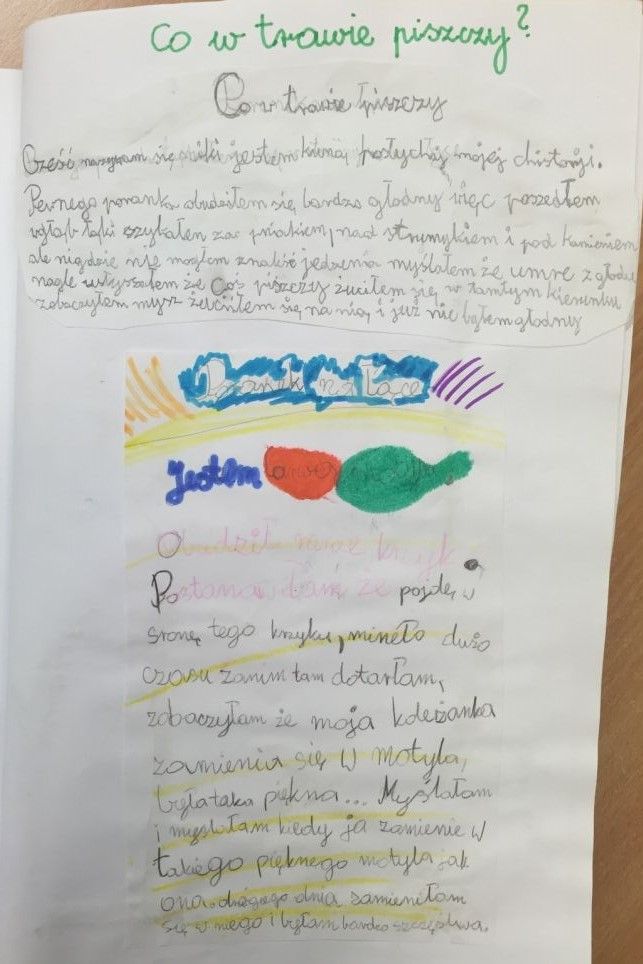 Co w trawie piszczy?
Co w trawie piszczy
Cześć nazywam się miki jestem kuną posłuchaj mojej chistorji.
Pewnego poranka obudziłem się bardzo głodny więc poszedłem
wgłąb łąki szukałem za pniakiem, nad strumykiem i pod kamieniem
ale nigdzie nie mogłem znaliść jedzenia myślałem że umre z głodu
nagle usłyszałem że Coś piszczy żuciłem się w tamtym kierunku
zobaczyłem mysz żuciłem się na nią i już nie byłem głodny
Poranek na łące
Jestem
Obudził mnie krzyk.
Postanawiłam że pojdę w
stronę tego krzyku, mineło dużo
czasu zanim tam dotarłam,
zobaczyłam że moja koleżanka
zamienia się w motyla,
była taka piękna... Myślałam
i myslałam kiedy ja zamienie w
takiego pięknego motyla jak
ona. drógiego dnia zamieniłam
się w niego i byłam bardzo szczęśliwa.